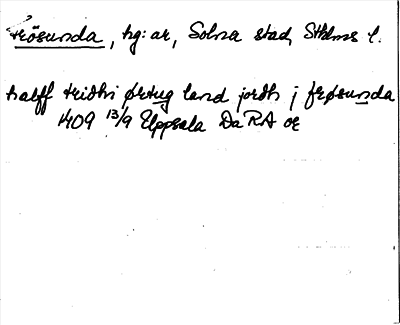 Frösunda, hg: ar, Solna stad, Sthlms l.
halff tridhi ørtug land jordh j frøsunda
1409 13/9 Uppsala DaRA or